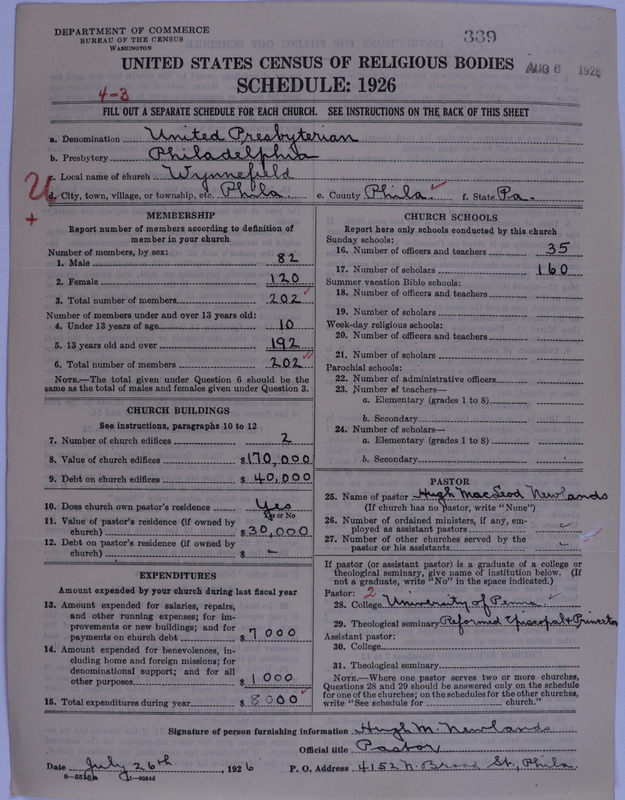 DEPARTMENT OF COMMERCE
BUREAU OF THE CENSUS
WASHINGTON
339
AUG 6 1926
UNITED STATES CENSUS OF RELIGIOUS BODIES
SCHEDULE: 1926
4-3
FILL OUT A SEPARATE SCHEDULE FOR EACH CHURCH. SEE INSTRUCTIONS ON THE BACK OF THIS SHEET
a. Denomination United Presbyterian
b. Presbytery Philadelphia
c. Local name of church Wynnefield
d. City, town, village, or township, etc. Phila. e. County Phila. f. State Pa.
MEMBERSHIP
Report number of members according to definition of
member in your church
Number of members, by sex:
1. Male 82
2. Female 120
3. Total number of members 202
Number of members under and over 13 years old:
4. Under 13 years of age 10
5. 13 years old and over 192
6. Total number of members 202
NOTE.—The total given under Question 6 should be the
same as the total of males and females given under Question 3.
CHURCH BUILDINGS
See instructions, paragraphs 10 to 12
7. Number of church edifices 2
8. Value of church edifices $170,000
9. Debt on church edifices $40,000
10. Does church own pastor's residence Yes
Yes or No
11. Value of pastor's residence (if owned by
church) $30,000
12. Debt on pastor's residence (if owned by
church) $ –
EXPENDITURES
Amount expended by your church during last fiscal year
13. Amount expended for salaries, repairs,
and other running expenses; for im-
provements or new buildings; and for
payments on church debt $7000
14. Amount expended for benevolences, in-
cluding home and foreign missions; for
denominational support; and for all
other purposes $1000
15. Total expenditures during year $8000
CHURCH SCHOOLS
Report here only schools conducted by this church
Sunday schools:
16. Number of officers and teachers 35
17. Number of scholars 160
Summer vacation Bible schools:
18. Number of officers and teachers
19. Number of scholars
Week-day religious schools:
20. Number of officers and teachers
21. Number of scholars
Parochial schools:
22. Number of administrative officers
23. Number of teachers—
a. Elementary (grades 1 to 8)
b. Secondary
24. Number of scholars—
a. Elementary (grades 1 to 8)
b. Secondary
PASTOR
25. Name of pastor Hugh MacLeod Newlands
(If church has no pastor, write "None")
26. Number of ordained ministers, if any, em-
ployed as assistant pastors
27. Number of other churches served by the
pastor or his assistants
If pastor (or assistant pastor) is a graduate of a college or
theological seminary, give name of institution below. (If
not a graduate, write "No" in the space indicated.)
Pastor: 2
28. College University of Penna
29. Theological seminary Reformed Episcopal & Princeton
Assistant pastor:
30. College
31. Theological seminary
NOTE.—Where one pastor serves two or more churches,
Questions 28 and 29 should be answered only on the schedule
for one of the churches; on the schedules for the other churches,
write "See schedule for church."
Signature of person furnishing information Hugh M. Newlands
Official title Pastor
Date July 26th, 1926 P. O. Address 4152 N. Broad St., Phila.